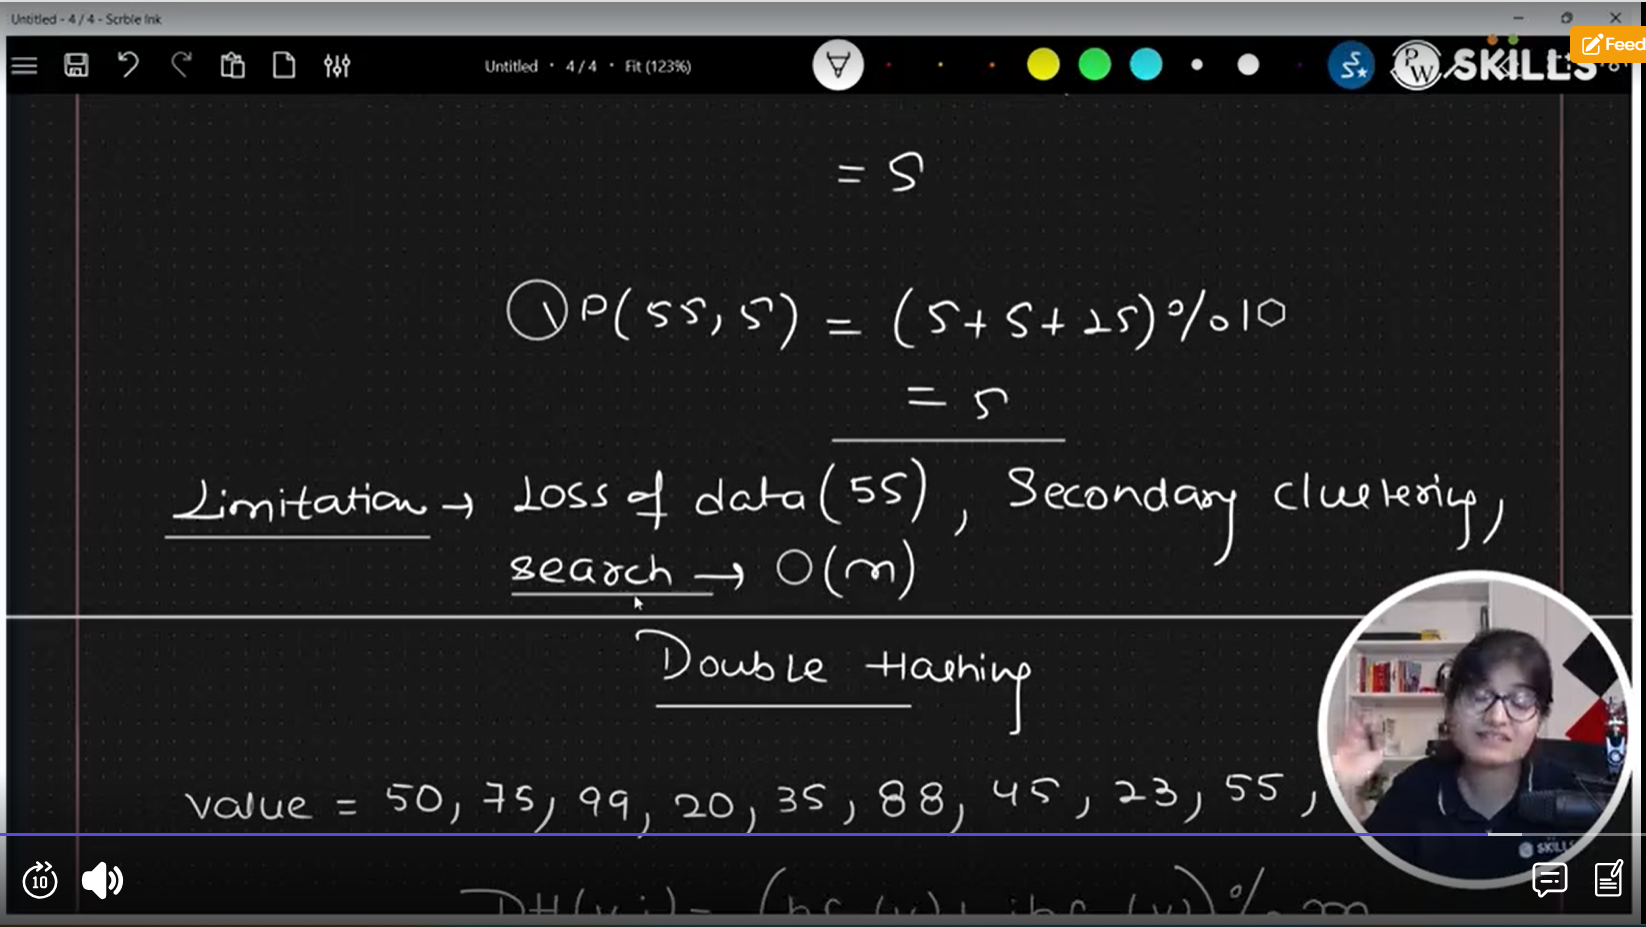 Untitled - 4 / 4 - Scrble Ink
Untitled • 4 / 4 • Fit (123%)
PW SKILLS
Feed
= 5
QP(55, 5) = (5+5+25)%10
= 5
Limitation → Loss of data (55), Secondary clustering,
search → O(n)
Double Hashing
value = 50, 75, 99, 20, 35, 88, 45, 23, 55,
10
SKILL